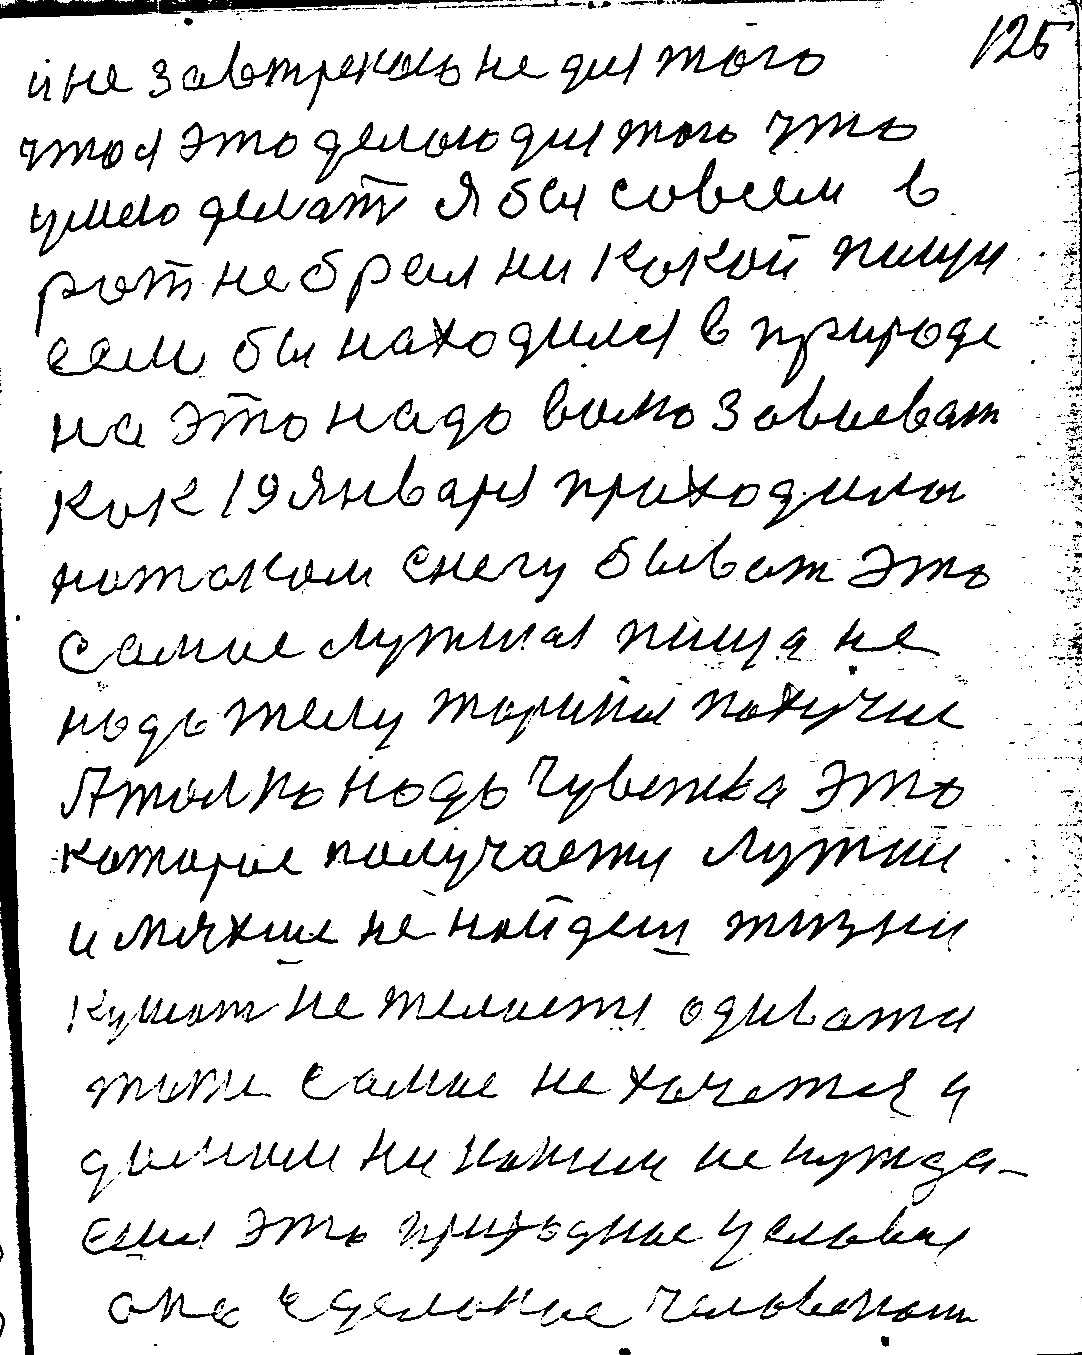 125
и не завтрекаю не для того
что я это делаю для того что
умею делат Я бы совсем в
рот не брал ни какой пищи
если бы находился в природе
на это надо вамо завоеват
как 19 января приходилы
на таком снегу быват это
самое лутшая пища не
надо телу жариная пахучие
А толко надо чувства это
которое получаетця лутши
и мякше не найдеш жизни
кушат не желается одиватя
тоже самое не хочется и
домом ни каким не нужда-
ешся это природное условия
она сделоное человеком